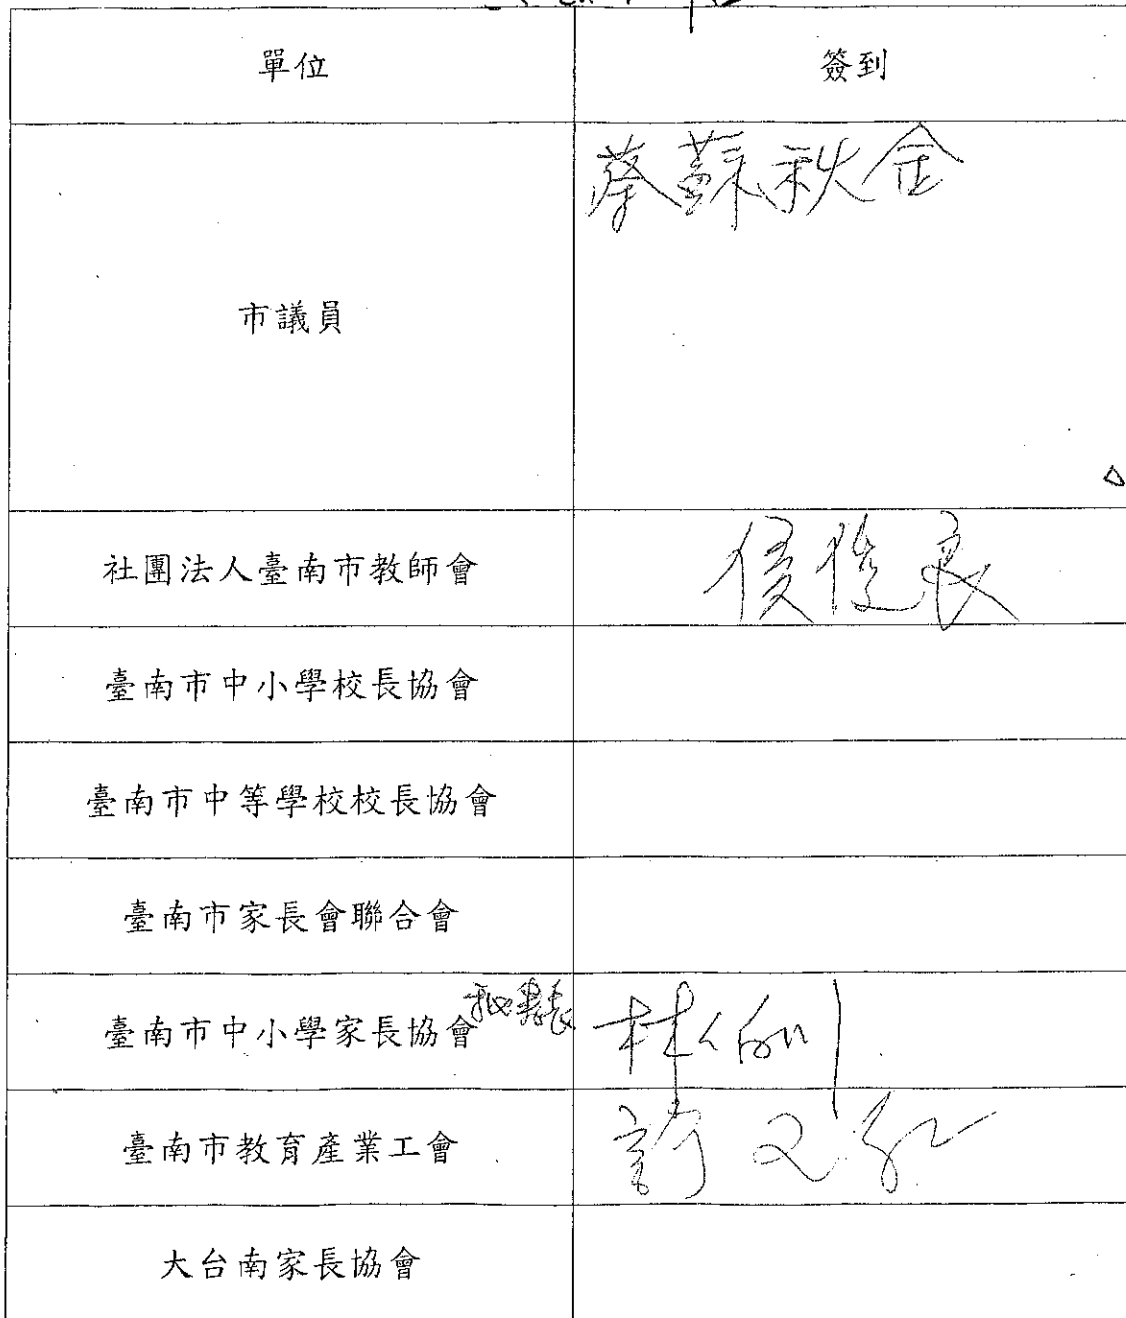 單位 簽到
市議員 蔡蘇秋金
社團法人臺南市教師會 侯俊良
臺南市中小學校長協會
臺南市中等學校校長協會
臺南市家長會聯合會
臺南市中小學家長協會 秘書長 林
臺南市教育產業工會 許又仁
大台南家長協會